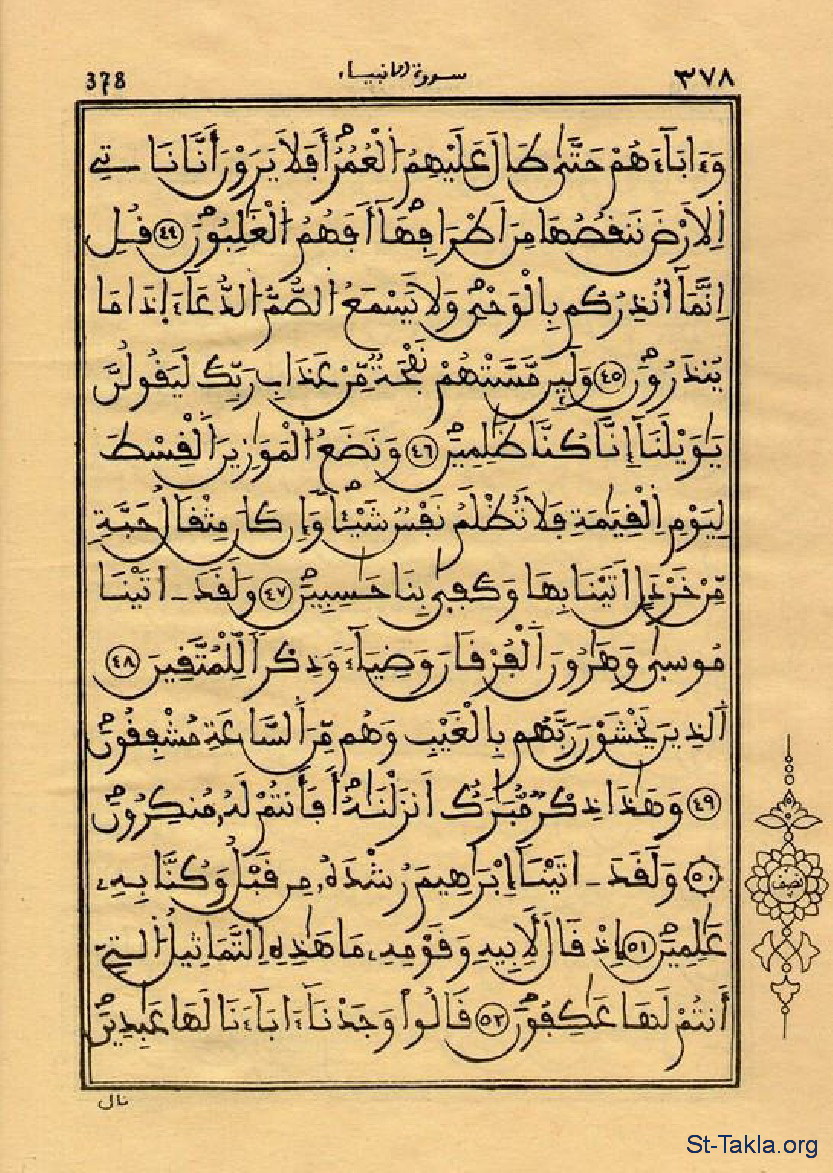 378 سورة الانبياء ٣٧٨
وَءَابَآءَهُمْ حَتَّىٰ طَالَ عَلَيْهِمُ الْعُمُرُ أَفَلَا يَرَوْنَ أَنَّا نَاتِے
اِلَارْضَ نَنقُصُهَا مِنَ اَطْرَافِهَآ أَفَهُمُ الْغَٰلِبُونَ ٤٤ قُلِ
اِنَّمَآ أُنذِرُكُم بِالْوَحْيِ وَلَا يَسْمَعُ الصُّمُّ الدُّعَآءَ اِذَا مَا
يُنذَرُونَ ٤٥ وَلَئِن مَّسَّتْهُمْ نَفْحَةٌ مِّنْ عَذَابِ رَبِّكَ لَيَقُولُنَّ
يَٰوَيْلَنَآ إِنَّا كُنَّا ظَٰلِمِينَ ٤٦ وَنَضَعُ الْمَوَٰزِينَ الْقِسْطَ
لِيَوْمِ الْقِيَٰمَةِ فَلَا تُظْلَمُ نَفْسٌ شَيْـًٔا وَإِن كَانَ مِثْقَالُ حَبَّةٍ
مِّنْ خَرْدَلٍ اَتَيْنَا بِهَا وَكَفِىٰ بِنَا حَٰسِبِينَ ٤٧ وَلَقَدَ اتَيْنَا
مُوسىٰ وَهَٰرُونَ الْفُرْقَانَ وَضِيَآءً وَذِكْراً لِّلْمُتَّقِينَ ٤٨
الذِينَ يَخْشَوْنَ رَبَّهُم بِالْغَيْبِ وَهُم مِّنَ السَّاعَةِ مُشْفِقُونَ
٤٩ وَهَٰذَا ذِكْرٌ مُّبَٰرَكٌ اَنزَلْنَٰهُ أَفَأَنتُمْ لَهُۥ مُنكِرُونَ
٥٠ وَلَقَدَ اتَيْنَآ إِبْرَٰهِيمَ رُشْدَهُۥ مِن قَبْلُ وَكُنَّا بِهِۦ
عَٰلِمِينَ ٥١ إِذْ قَالَ لِأَبِيهِ وَقَوْمِهِۦ مَا هَٰذِهِ التَّمَاثِيلُ التِے
أَنتُمْ لَهَا عَٰكِفُونَ ٥٢ قَالُواْ وَجَدْنَآ ءَابَآءَنَا لَهَا عَٰبِدِينَ
نصف
قال
St-Takla.org